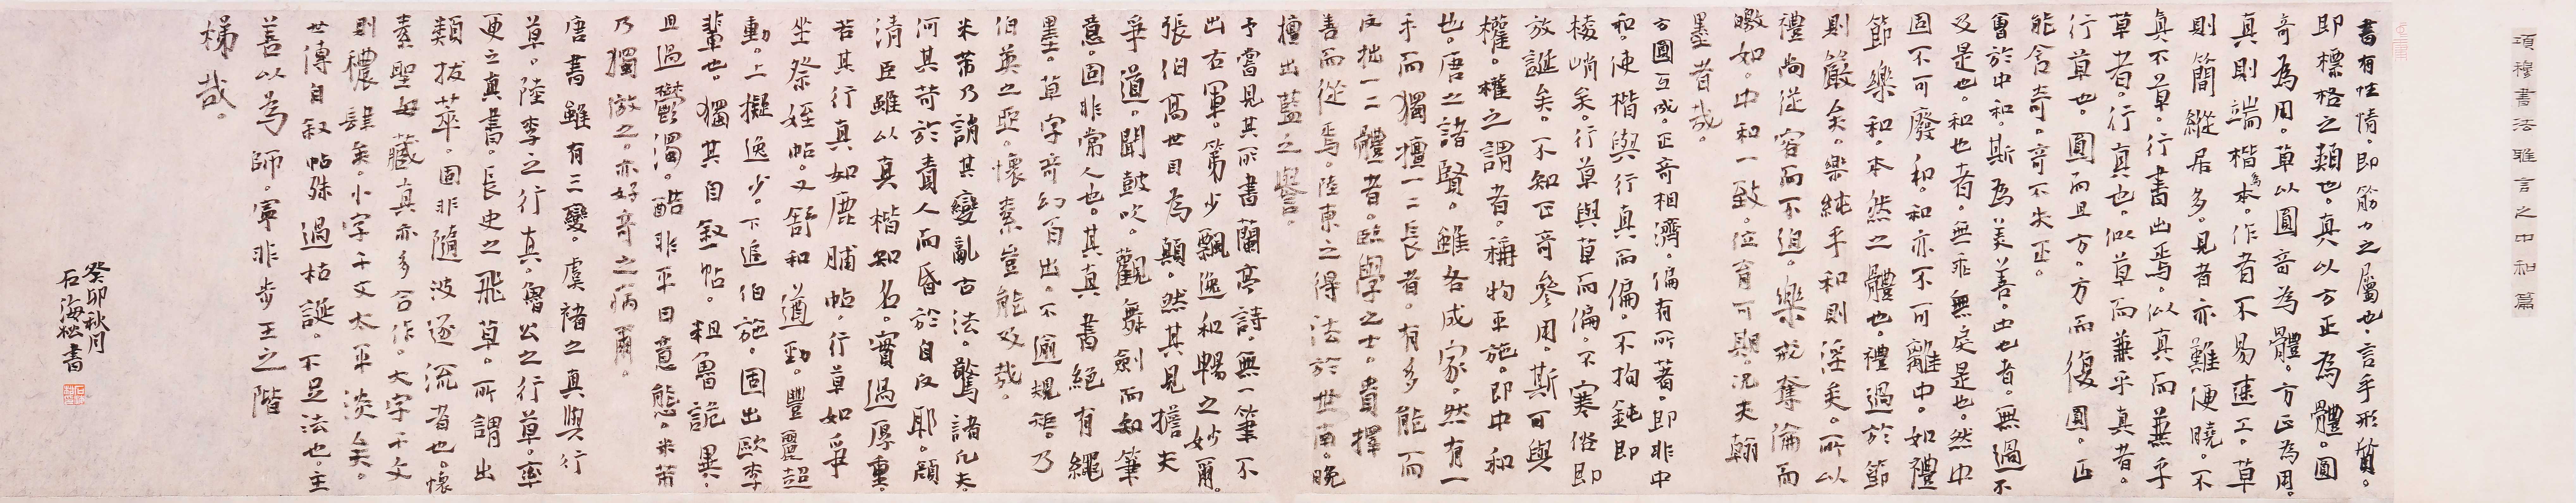 項穆書法雅言之中和篇
書有性情即筋力之屬也言乎形質
即標格之類也真以方正為體圓
奇為用草以圓奇為體方正為用
真則端楷為本作者不易速工草
則簡縱居多見者亦難便曉不
真不草行書出焉似真而兼乎
草者行真也似草而兼乎真者
行草也圓而且方方而復圓正
能含奇奇不失正
會於中和斯為美善中也者無過不
及是也和也者無乖無戾是也然中
固不可廢和和亦不可離中如禮
節樂和本然之體也禮過於節
則嚴矣樂純乎和則淫矣所以
禮尚從容而不迫樂戒奪倫而
皦如中和一致位育可期況夫翰
墨者哉
方圓互成正奇相濟偏有所著即非中
和使楷與行真而偏不拘鈍即
棱峭矣行草與草而偏不寒俗即
放誕矣不知正奇參用斯可與
權權之謂者稱物平施即中和
也唐之諸賢雖各成家然有一
手而獨擅一二長者有多能而
反拙一二體者臨學之士貴擇
善而從焉陸東之得法於世南晚
擅出藍之譽
予嘗見其所書蘭亭詩無一筆不
出右軍第少飄逸和暢之妙爾
張伯高世目為顛然其見擔夫
爭道聞鼓吹觀舞劍而知筆
意固非常人也其真書絕有繩
墨草字奇幻百出不逾規矩乃
伯英之亞懷素豈能及哉
米芾乃誚其變亂古法驚諸凡夫
何其苛於責人而昏於自反耶顏
清臣雖以真楷知名實過厚重
若其行真如鹿脯帖行草如爭
坐祭姪帖又舒和遒勁豐麗超
動上擬逸少下追伯施固出歐李
輩也獨其自敘帖粗魯詭異
且過鬱濁酷非平日意態米芾
乃獨倣之亦好奇之病爾
唐書雖有三變虞褚之真與行
草陸李之行真魯公之行草率
更之真書長史之飛草所謂出
類拔萃固非隨波逐流者也懷
素聖母藏真亦多合作大字千文
則穠肆矣小字千文太平淡矣
世傳自敘帖殊過枯誕不足法也主
善以為師寧非步王之階
梯哉
癸卯秋月
石海松書